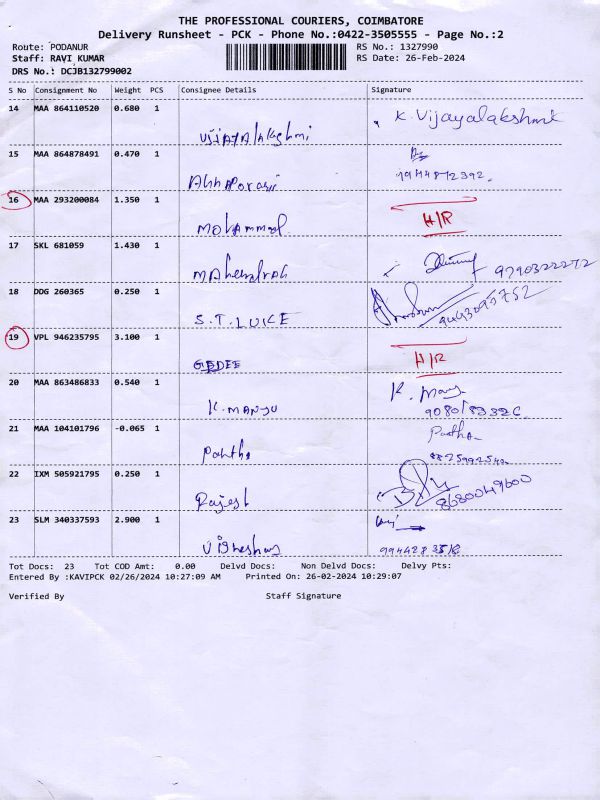 THE PROFESSIONAL COURIERS, COIMBATORE
Delivery Runsheet - PCK - Phone No.:0422-3505555 - Page No.:2
Route: PODANUR RS No.: 1327990
Staff: RAVI KUMAR RS Date: 26-Feb-2024
DRS No.: DCJB132799002
S No Consignment No Weight PCS Consignee Details Signature
14 MAA 864110520 0.680 1 K. Vijayalakshmi
15 MAA 864878491 0.470 1
16 MAA 293200084 1.350 1 Mohammed H/R
17 SKL 681059 1.430 1 9790322272
18 DDG 260365 0.250 1 S.T. LUICE 9443095752
19 VPL 946235795 3.100 1 GEDEE H/R
20 MAA 863486833 0.540 1 K. MANJU K.
21 MAA 104101796 -0.065 1 Partha
22 IXM 505921795 0.250 1 Rajesh 8680049600
23 SLM 340337593 2.900 1
Tot Docs: 23 Tot COD Amt: 0.00 Delvd Docs: Non Delvd Docs: Delvy Pts:
Entered By :KAVIPCK 02/26/2024 10:27:09 AM Printed On: 26-02-2024 10:29:07
Verified By Staff Signature